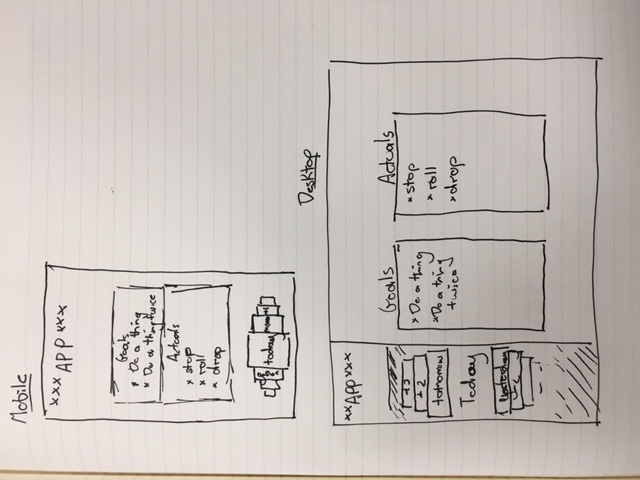 Mobile
xxx APP xxx
Goals
x Do a thing
x Do a thing twice
Actuals
x stop
x roll
x drop
today
Desktop
xx APP xxx
+3
+2
tomorrow
Today
yesterday
Goals
x Do a thing
x Do a thing
twice
Actuals
x stop
x roll
x drop